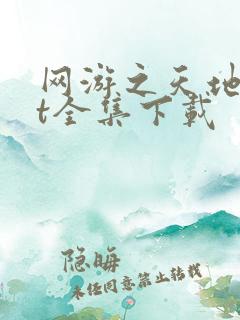 网游之天地
t全集下载
隐晦
未经同意禁止转载